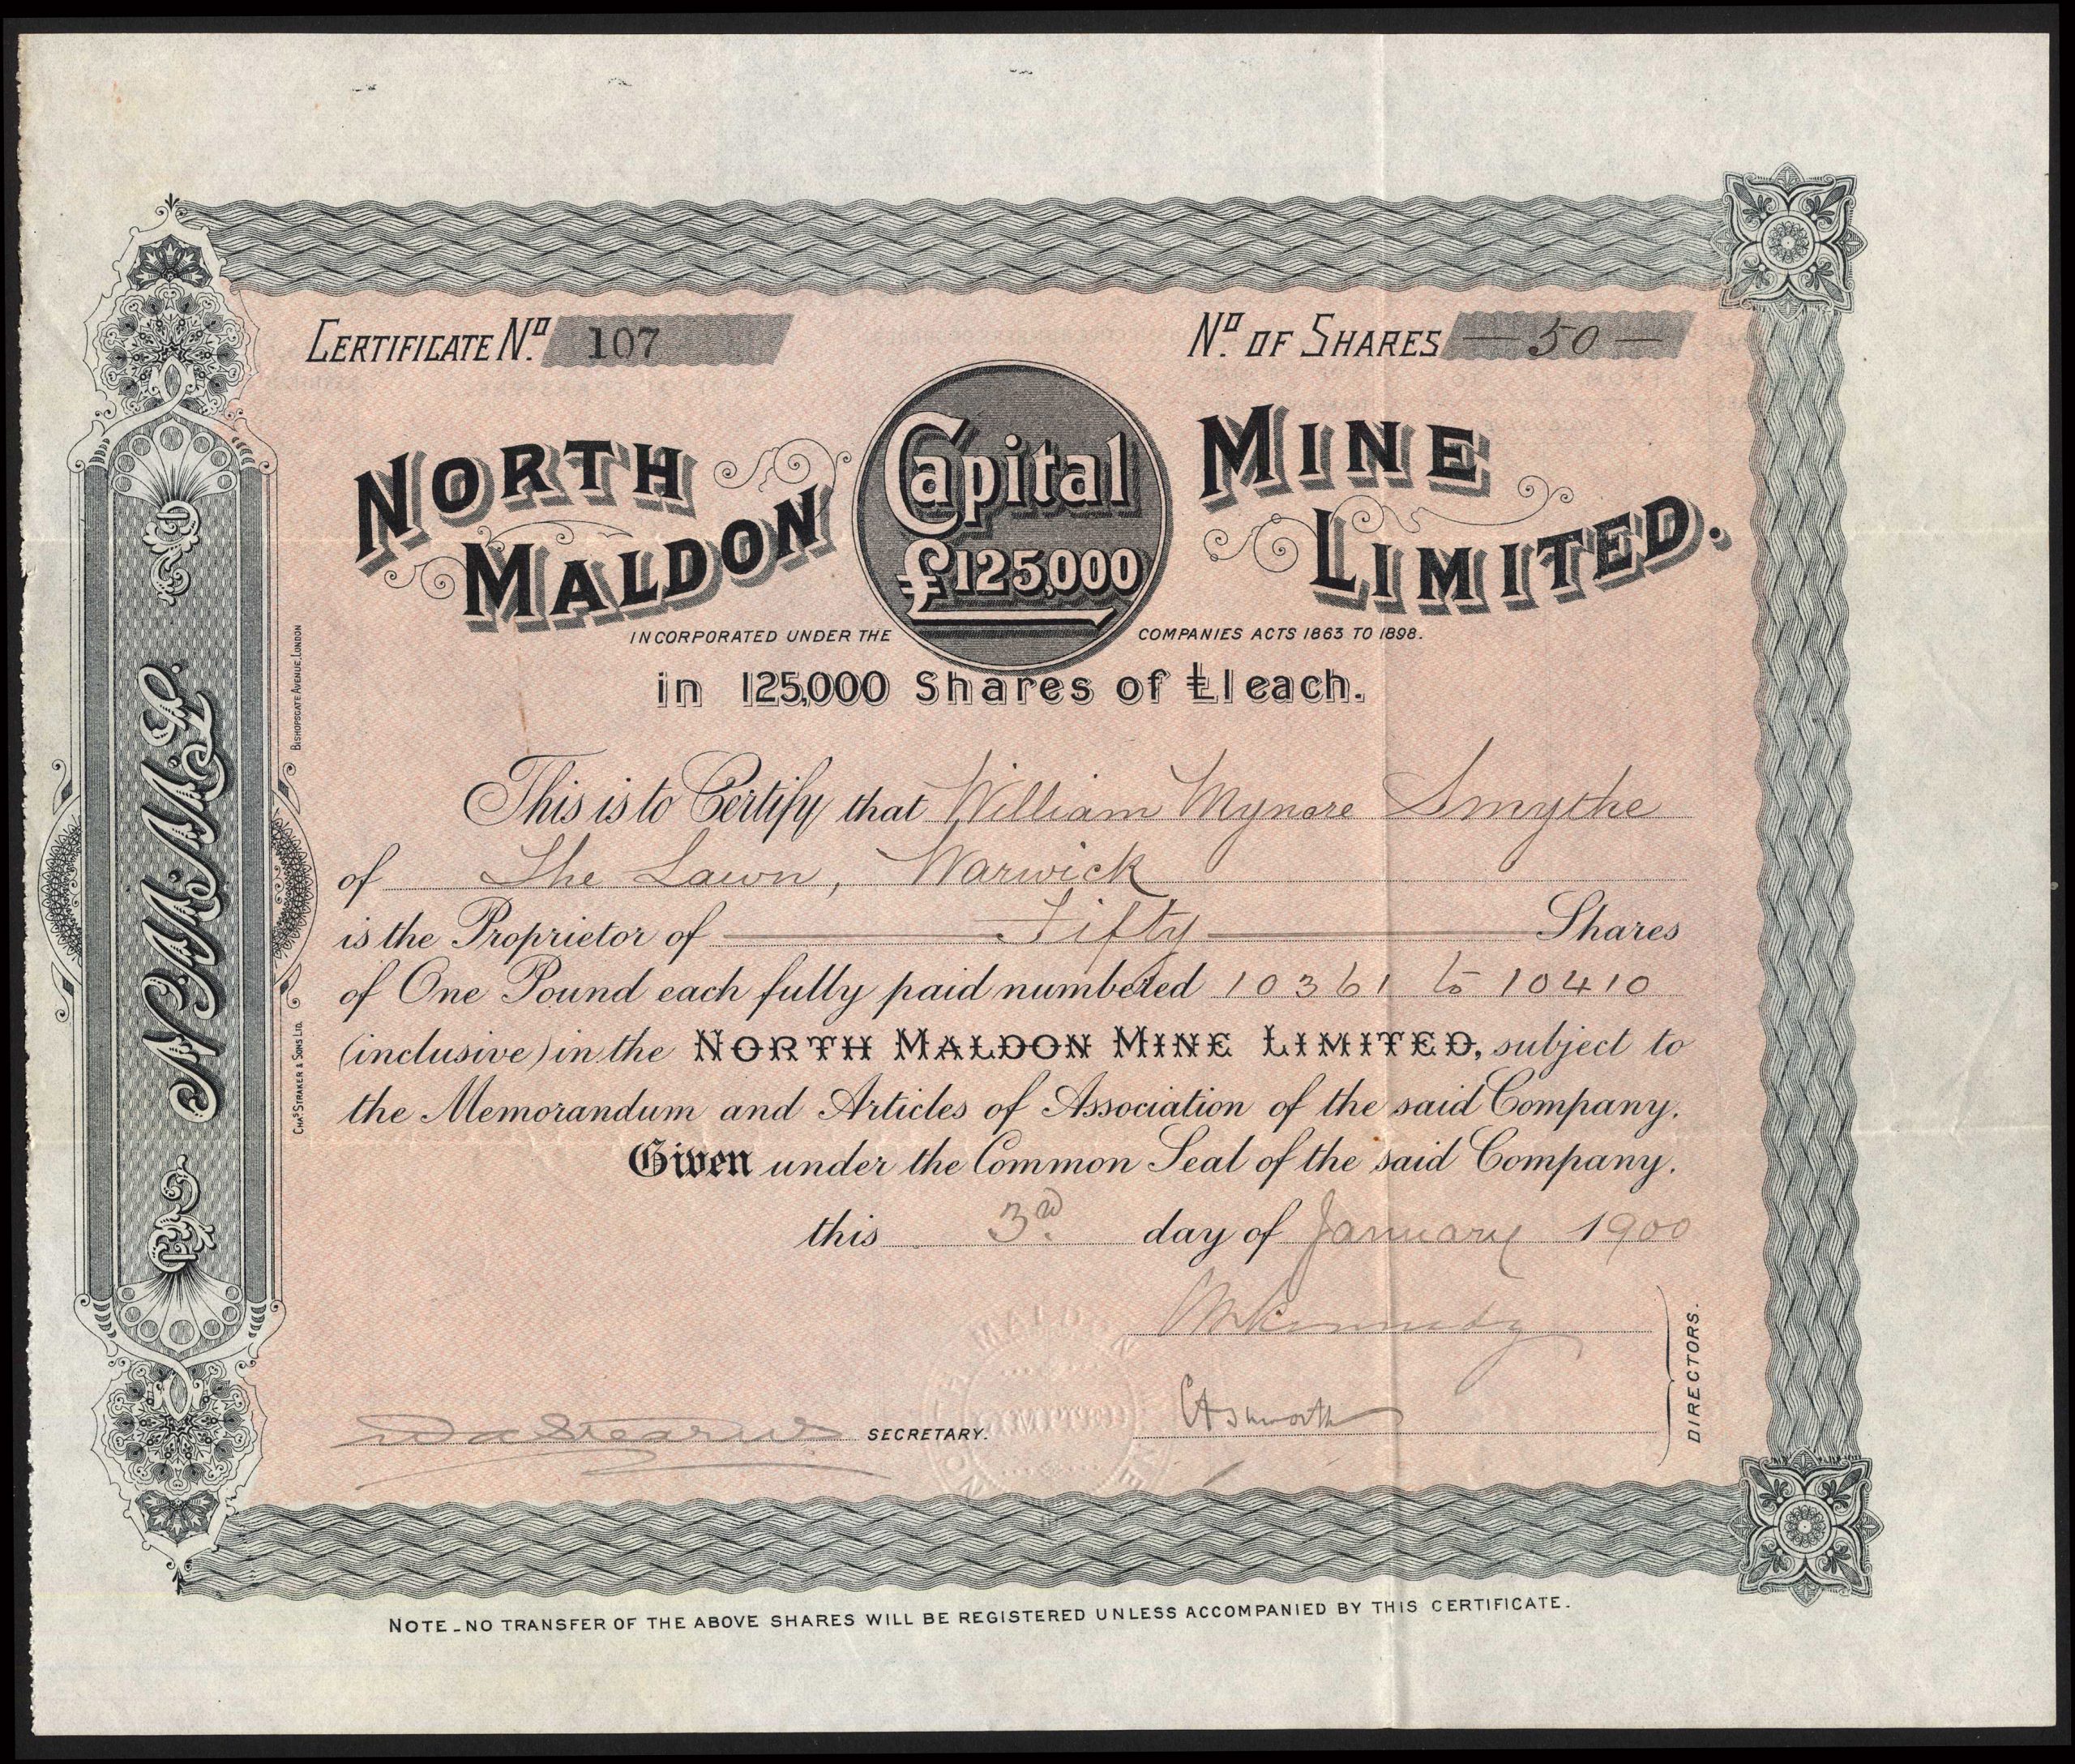 CERTIFICATE No. 107
No. OF SHARES — 50 —
NORTH MALDON
Capital £125,000
MINE LIMITED.
INCORPORATED UNDER THE COMPANIES ACTS 1863 TO 1898.
in 125,000 Shares of £1 each.
This is to Certify that William Mynore Smythe
of The Lawn, Warwick
is the Proprietor of Fifty Shares
of One Pound each fully paid numbered 10361 to 10410
(inclusive) in the NORTH MALDON MINE LIMITED, subject to
the Memorandum and Articles of Association of the said Company.
Given under the Common Seal of the said Company.
this 3rd day of January 1900
Kennedy
CAshworth
DIRECTORS.
SECRETARY.
NORTH MALDON MINE LIMITED
N.M.M.L.
BISHOPSGATE AVENUE, LONDON
CHAS. STRAKER & SONS LTD.
NOTE - NO TRANSFER OF THE ABOVE SHARES WILL BE REGISTERED UNLESS ACCOMPANIED BY THIS CERTIFICATE.